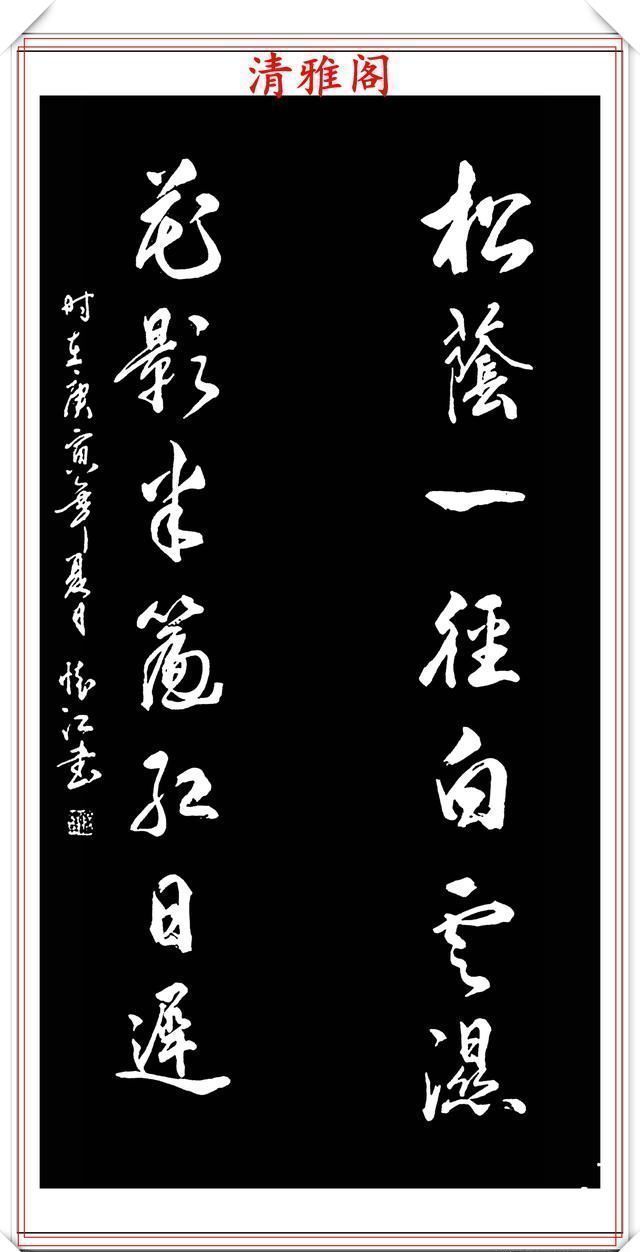 清雅阁
松蔭一徑白云濕
花影半簾紅日遲
时在庚寅年夏日 懷江書